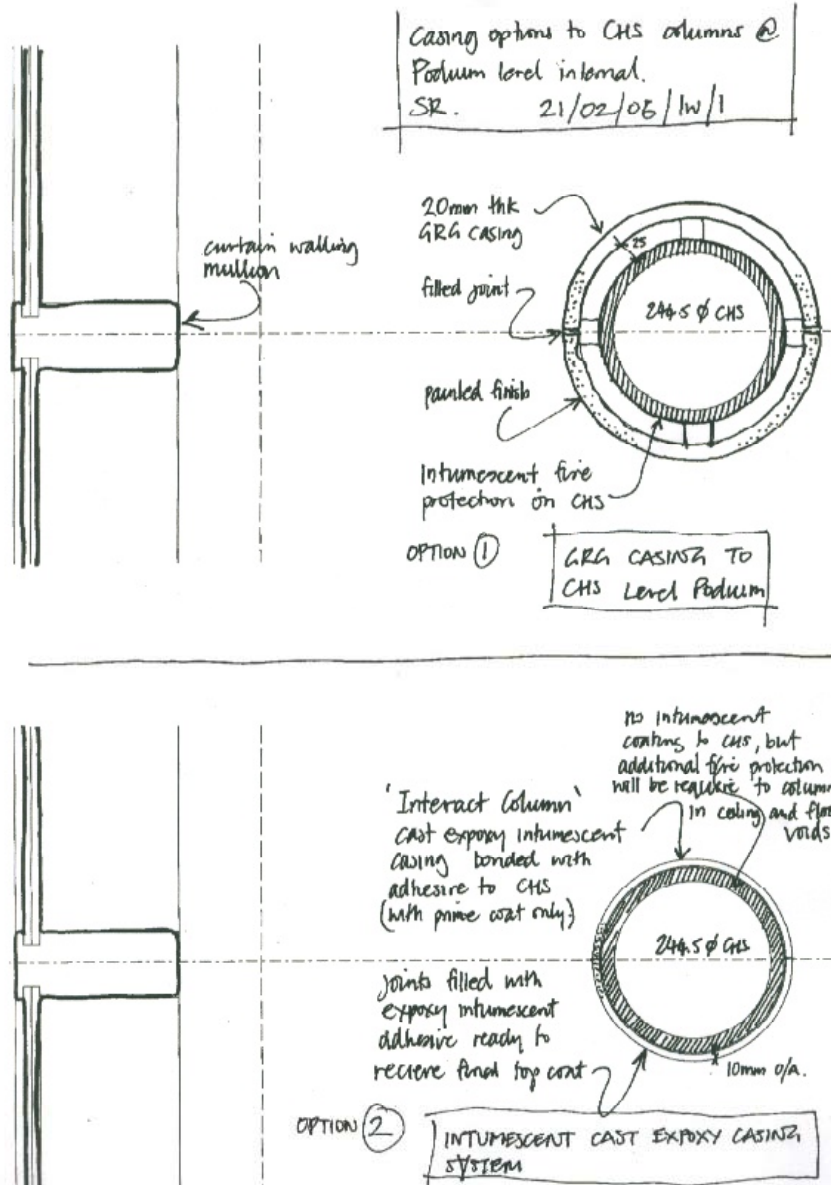 Casing options to CHS columns @
Podium level internal.
SR. 21/02/06/lw/1
curtain walling
mullion
20mm thk
GRG casing
25
filled joint
244.5 Ø CHS
painted finish
Intumescent fire
protection on CHS
OPTION 1
GRG CASING TO
CHS Level Podium
no intumescent
coating to CHS, but
additional fire protection
will be require to column
in ceiling and floo
voids
'Interact Column'
cast expoxy intumescent
casing bonded with
adhesive to CHS
(with prime coat only)
244.5 Ø CHS
joints filled with
expoxy intumescent
adhesive ready to
recieve final top coat
10mm O/A.
OPTION 2
INTUMESCENT CAST EXPOXY CASING
SYSTEM